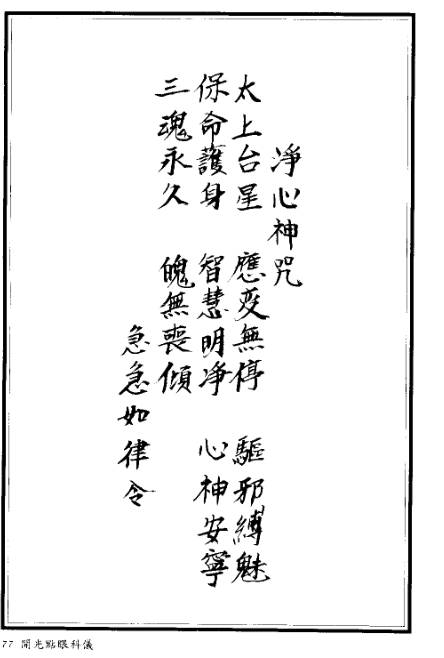 淨心神咒
太上台星 應變無停 驅邪縛魅
保命護身 智慧明淨 心神安寧
三魂永久 魄無喪傾
急急如律令
77 開光點眼科儀